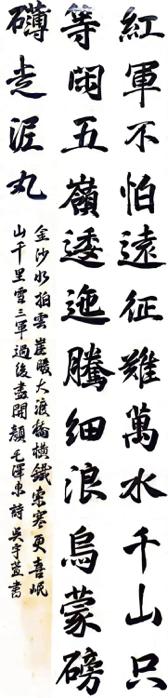 紅軍不怕遠征難萬水千山只
等閑五嶺逶迤騰細浪烏蒙磅
礴走泥丸
金沙水拍雲崖暖大渡橋橫鐵索寒更喜岷
山千里雪三軍過後盡開顏毛澤東詩 吳宇萱書